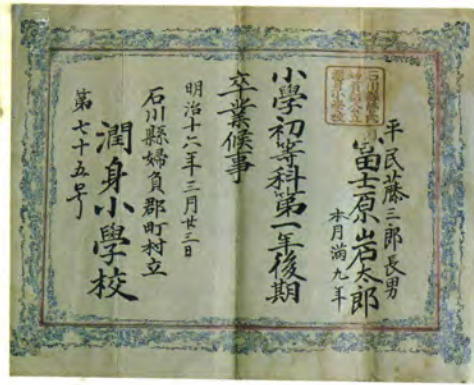 平民藤三郎長男
冨士原岩太郎
本月満九年
小學初等科第一年後期
卒業候事
明治十六年三月廿三日
石川縣婦負郡町村立
潤身小學校
第七十五号